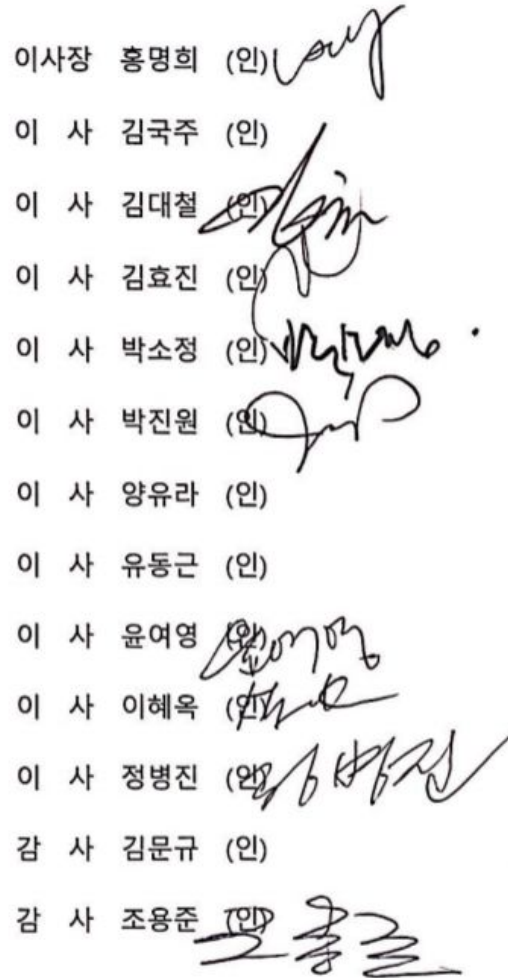 이사장 홍명희 (인)
이 사 김국주 (인)
이 사 김대철 (인)
이 사 김효진 (인)
이 사 박소정 (인) 박소정
이 사 박진원 (인)
이 사 양유라 (인)
이 사 유동근 (인)
이 사 윤여영 (인) 윤여영
이 사 이혜옥 (인)
이 사 정병진 (인) 정병진
감 사 김문규 (인)
감 사 조용준 (인)